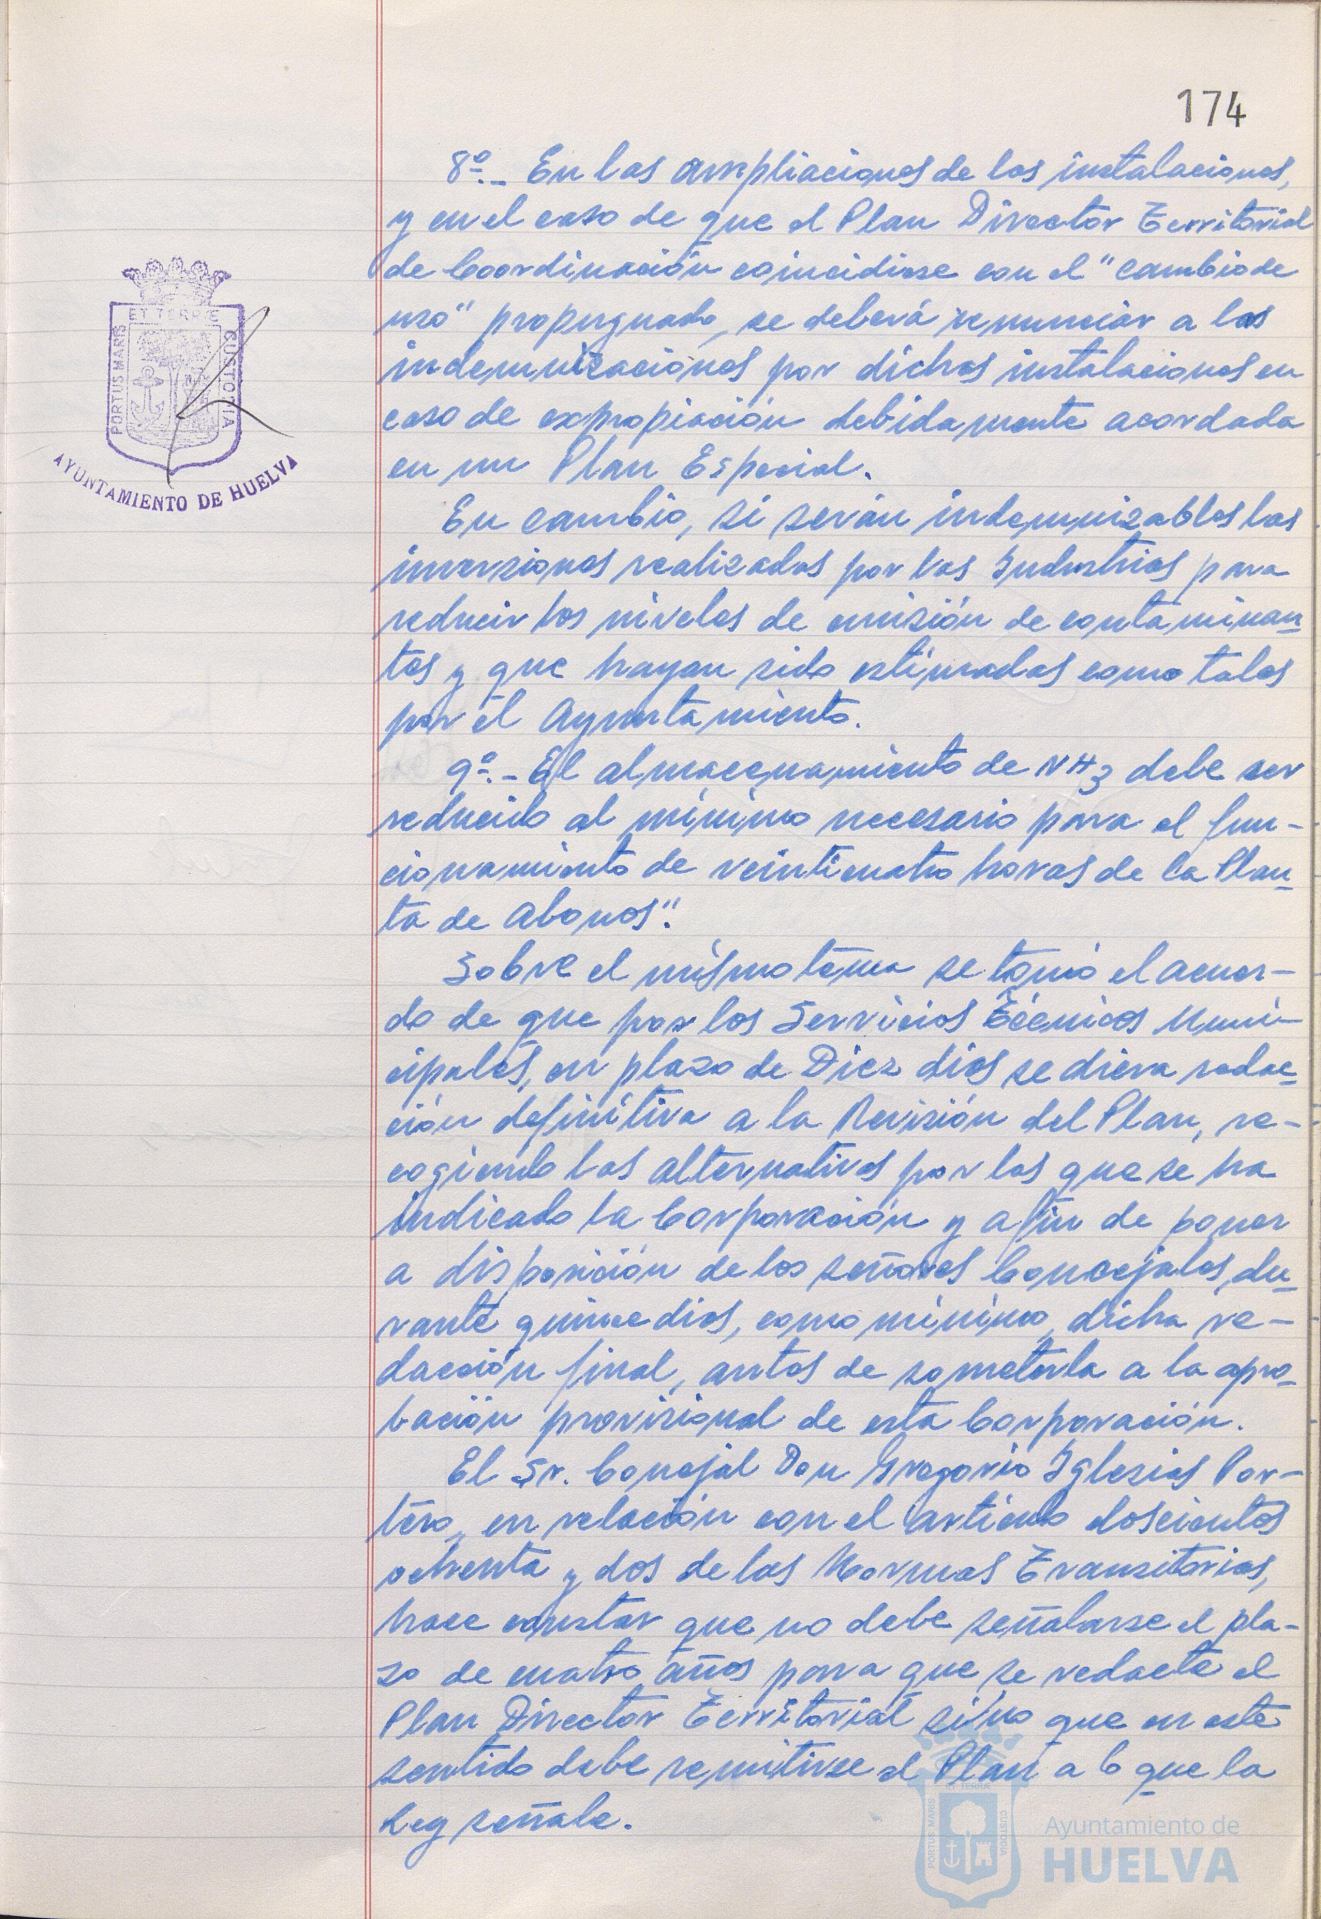 174
8º.- En las ampliaciones de las instalaciones,
y en el caso de que el Plan Director Territorial
de Coordinación coincidiese con el "cambio de
uso" propugnado, se deberá renunciar a las
indemnizaciones por dichas instalaciones en
caso de expropiación debidamente acordada
en un Plan Especial.
En cambio, sí serán indemnizables las
inversiones realizadas por las Industrias para
reducir los niveles de emisión de contaminan-
tes y que hayan sido estimadas como tales
por el Ayuntamiento.
9º.- El almacenamiento de NH3 debe ser
reducido al mínimo necesario para el fun-
cionamiento de veinticuatro horas de la Plan-
ta de Abonos".
Sobre el mismo tema se tomó el acuer-
do de que por los Servicios Técnicos Muni-
cipales, en plazo de Diez dias se diera redac-
ción definitiva a la Revisión del Plan, re-
cogiendo las alternativas por las que se ha
indicado la Corporación y a fin de poner
a disposición de los señores Concejales, du-
rante quince dias, como mínimo, dicha re-
dacción final, antes de someterla a la apro-
bación provisional de esta Corporación.
El Sr. Concejal Don Gregorio Iglesias Por-
tero, en relación con el artículo doscientos
ochenta y dos de las Normas Transitorias,
hace constar que no debe señalarse el pla-
zo de cuatro años para que se redacte el
Plan Director Territorial sino que en este
sentido debe remitirse el Plan a lo que la
Ley señale.
ET TERRÆ
PORTUS MARIS
CUSTODIA
AYUNTAMIENTO DE HUELVA
ET TERRÆ
PORTUS MARIS
CUSTODIA
Ayuntamiento de
HUELVA